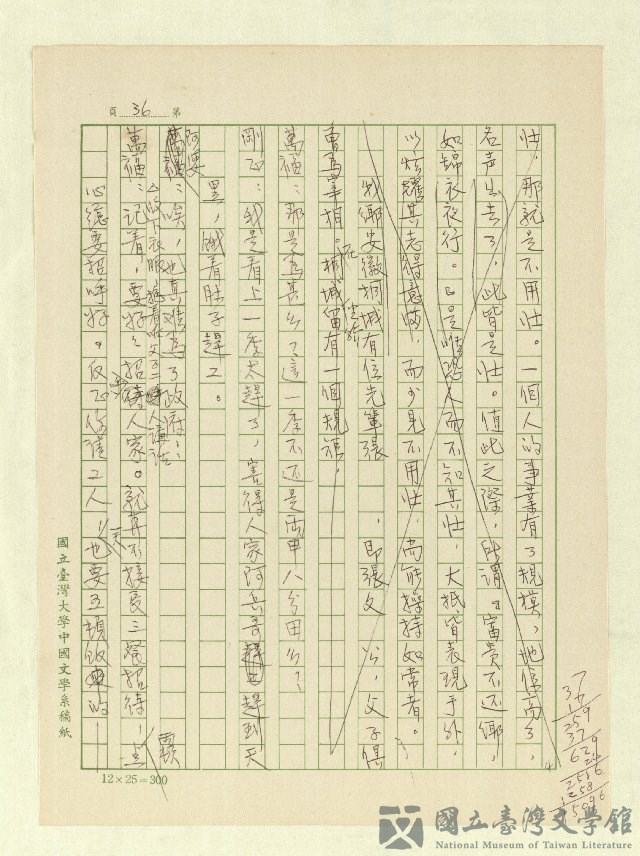 第 36 頁
壯，那就是不用壯。一個人的事業有了規模，地位高了，
名声出去了，此皆是壯。值此之際，所謂『富貴不还鄉，
如錦衣夜行。』是唯恐人而不知其壯，大抵皆表現于外，
以炫耀其志得意滿，而少見不用壯，尚能操持如常者。
我鄉安徽桐城有位先輩張 即張文 公，父子俱
曾為宰相。桐城留有一個規矩。
萬福：那是為甚么？這一季不还是兩甲八分田么？
剛正：我是看上一季太趕了，害得人家阿兵哥趕到天
黑，餓着肚子趕工。
阿雯：唉，也真难為了政府…
萬福：記着，要好好招待人家。就算不接長三餐招待，点
心總要招呼好。反正你請工人，一天也要五頓飯的。
國立臺灣大學中國文學系稿紙
12×25=300
37
17
259
37
629
國立臺灣文學館
National Museum of Taiwan Literature